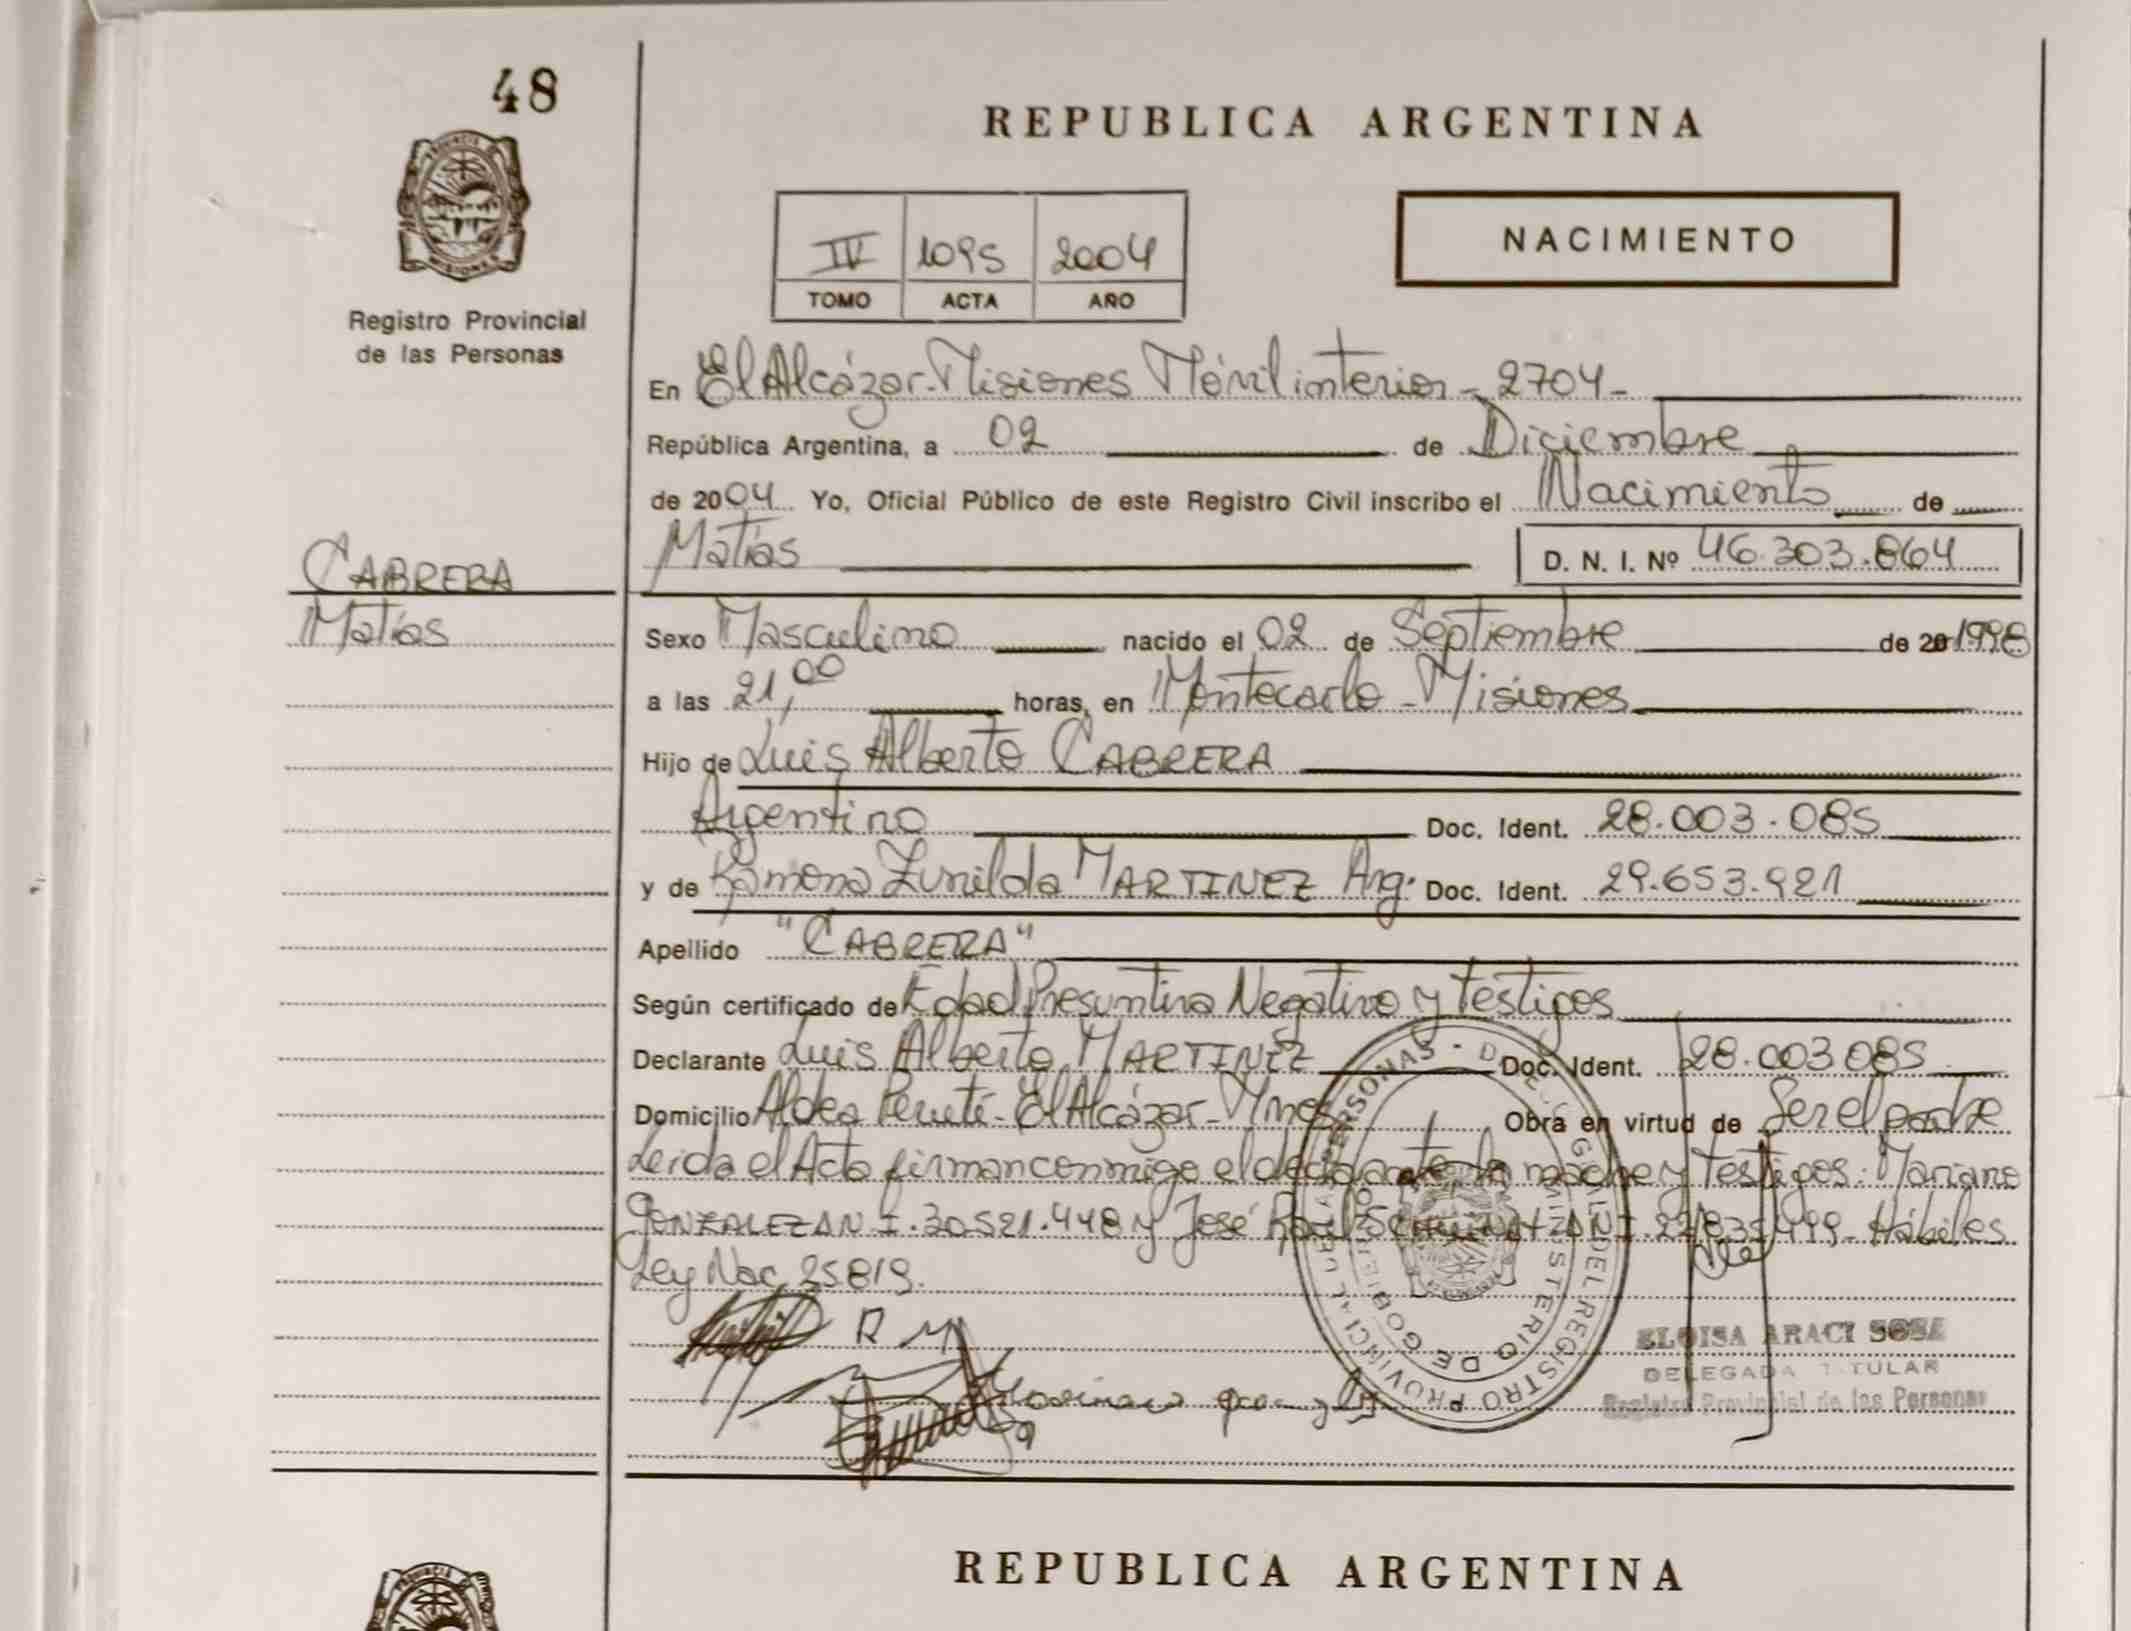 48
REPUBLICA ARGENTINA
NACIMIENTO
IV 1095 2004
TOMO ACTA AÑO
Registro Provincial
de las Personas
En El Alcázar-Misiones Móvil interior - 2704-
República Argentina, a 02 de Diciembre
de 2004 Yo, Oficial Público de este Registro Civil inscribo el Nacimiento de
CABRERA
Matías
Matías D. N. I. Nº 46.303.864
Sexo Masculino nacido el 02 de Septiembre de 20 1998
a las 21,00 horas, en Montecarlo - Misiones
Hijo de Luis Alberto CABRERA
Argentino Doc. Ident. 28.003.085
y de Ramona Zunilda MARTINEZ Arg. Doc. Ident. 29.653.921
Apellido "CABRERA"
Según certificado de Edad Presuntiva Negativo y testigos
Declarante Luis Alberto MARTINEZ Doc. Ident. 28.003085
Domicilio Aldea Perutí- El Alcázar- Mnes Obra en virtud de Ser el padre
Leida el Acta firman conmigo el declarante, la madre y Testigos: Mariano
GONZALEZ DN I. 30521.448 y José Raul DN I. Hábiles
Ley Nac 25819.
R M
REGISTRO PROVINCIAL DE LAS PERSONAS - MINISTERIO DE GOBIERNO
ELOISA ARACI SOSA
DELEGADA TITULAR
Registro Provincial de las Personas
REPUBLICA ARGENTINA